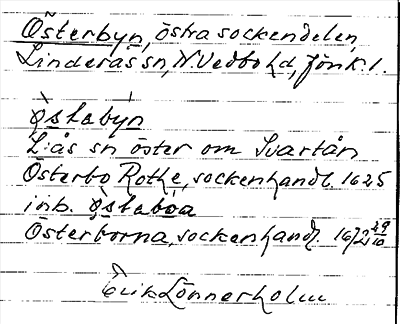 Österbyn, östra sockendelen,
Linderås sn, N. Vedbo hd, Jönk. l.
Östəbýn
L:ås sn öster om Svartån
Österbo Rothe, sockenhandl. 1625
inb. östəbòa
Österborna, sockenhandl. 1672 29/10
Erik Lönnerholm